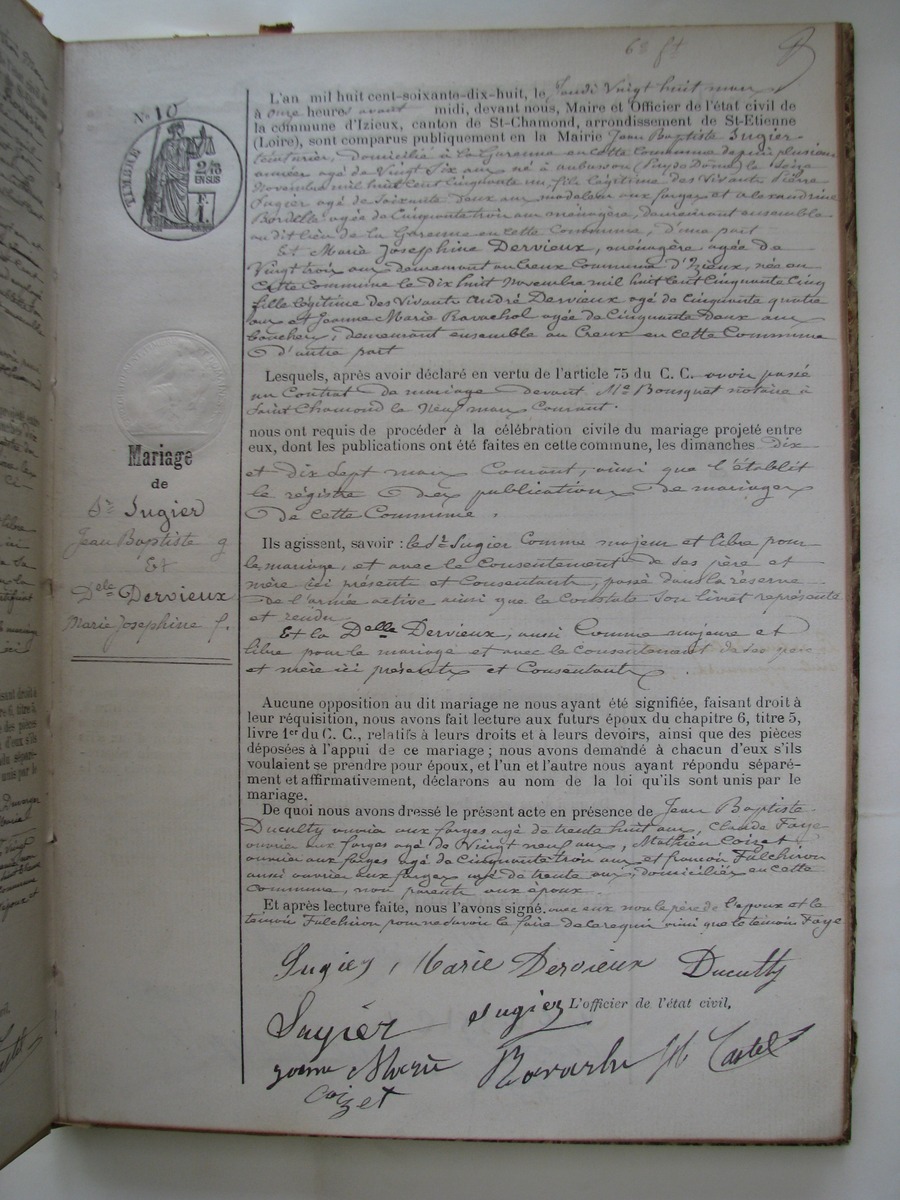 68 ft
N° 10
TIMBRE
2/10
EN SUS
F.
1.
Mariage
de
Sr Sugier
Jean Baptiste g
Et
Delle Dervieux
Marie Josephine f.
L'an mil huit cent-soixante-dix-huit, le Lundi Vingt huit mars
à onze heures avant midi, devant nous, Maire et Officier de l'état civil de
la commune d'Izieux, canton de St-Chamond, arrondissement de St-Etienne
(Loire), sont comparus publiquement en la Mairie Jean Baptiste Sugier
teinturier, domicilié à la Garenne en cette Commune depuis plusieurs
années agé de Vingt Six ans né à aubusson (Puy de Dôme) le Seize
Novembre mil huit Cent Cinquante un, fils légitime des Vivants Pierre
Sugier agé de Soixante deux ans modeleur aux forges et alexandrine
Bordelle agée de Cinquante trois ans ménagère, demeurant ensemble
au dit lieu de la Garenne en cette Commune, d'une part
Et Marie Josephine Dervieux, ménagère agée de
Vingt trois ans demeurant au Creux Commune d'Izieux, née en
Cette Commune le dix huit Novembre mil huit Cent Cinquante Cinq
fille légitime des Vivants André Dervieux agé de Cinquante quatre
ans et Jeanne Marie Ravachol agée de Cinquante Deux ans
bouchers, demeurant ensemble au Creux en cette Commune
d'autre part
Lesquels, après avoir déclaré en vertu de l'article 75 du C. C. avoir passé
un Contrat de mariage devant Me Bousquet notaire à
Saint Chamond le Neuf mars Courant.
nous ont requis de procéder à la célébration civile du mariage projeté entre
eux, dont les publications ont été faites en cette commune, les dimanches dix
et dix Sept mars Courant, ainsi que l'établit
le régistre des publications de mariages
de cette Commune.
Ils agissent, savoir : le Sr Sugier Comme majeur et libre pour
le mariage, et avec le Consentement de ses père et
mère ici présents et Consentants, passé dans la réserve
de l'armée active ainsi que le Constate Son livret représenté
et rendu
Et la Delle Dervieux, aussi Comme majeure et
libre pour le mariage et avec le consentement de ses père
et mère ici présents et Consentants.
Aucune opposition au dit mariage ne nous ayant été signifiée, faisant droit à
leur réquisition, nous avons fait lecture aux futurs époux du chapitre 6, titre 5,
livre 1er du C. C., relatifs à leurs droits et à leurs devoirs, ainsi que des pièces
déposées à l'appui de ce mariage ; nous avons demandé à chacun d'eux s'ils
voulaient se prendre pour époux, et l'un et l'autre nous ayant répondu séparé-
ment et affirmativement, déclarons au nom de la loi qu'ils sont unis par le
mariage.
De quoi nous avons dressé le présent acte en présence de Jean Baptiste
Duculty ouvrier aux forges agé de trente huit ans, Claude Faye
ouvrier aux forges agé de Vingt neuf ans, Mathieu Coizet
ouvrier aux forges agé de Cinquante trois ans et françois Fulchiron
aussi ouvrier aux forges agé de trente ans, domiciliés en cette
Commune, non parents aux époux.
Et après lecture faite, nous l'avons signé. avec eux non le père de l'époux et le
témoin Fulchiron pour ne savoir le faire de ce requis ainsi que le témoin Faye
Sugier Marie Dervieux Duculty
Sugier Sugier L'officier de l'état civil,
Marie Castel
Coizet